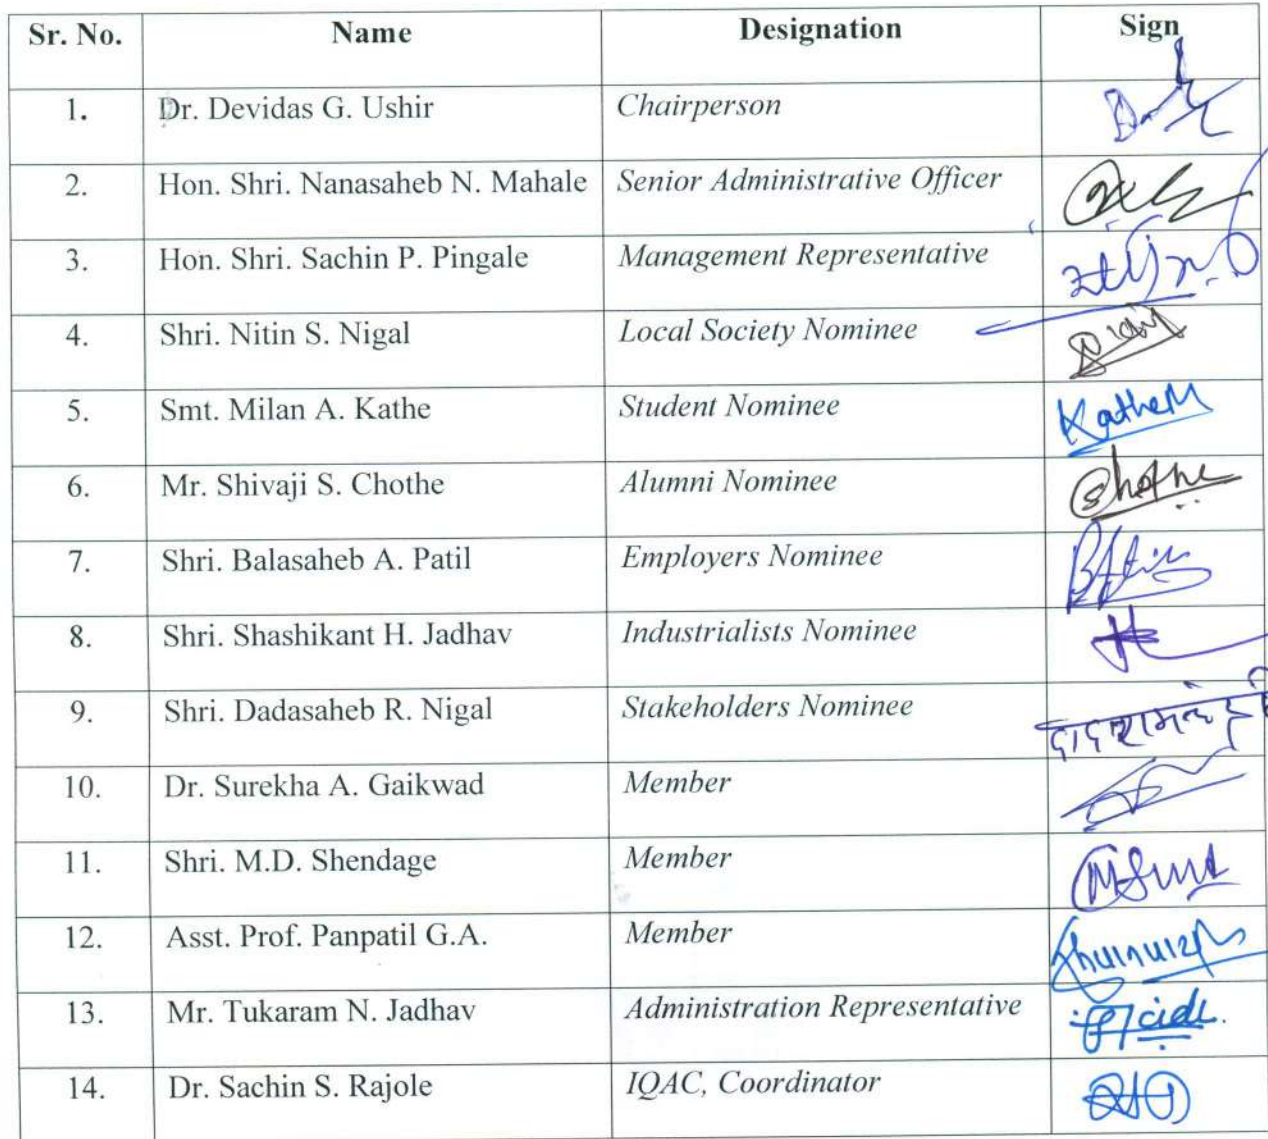 Sr. No. Name Designation Sign
1. Dr. Devidas G. Ushir Chairperson
2. Hon. Shri. Nanasaheb N. Mahale Senior Administrative Officer
3. Hon. Shri. Sachin P. Pingale Management Representative
4. Shri. Nitin S. Nigal Local Society Nominee
5. Smt. Milan A. Kathe Student Nominee KatheM
6. Mr. Shivaji S. Chothe Alumni Nominee Chothe
7. Shri. Balasaheb A. Patil Employers Nominee
8. Shri. Shashikant H. Jadhav Industrialists Nominee
9. Shri. Dadasaheb R. Nigal Stakeholders Nominee
10. Dr. Surekha A. Gaikwad Member
11. Shri. M.D. Shendage Member
12. Asst. Prof. Panpatil G.A. Member
13. Mr. Tukaram N. Jadhav Administration Representative
14. Dr. Sachin S. Rajole IQAC, Coordinator